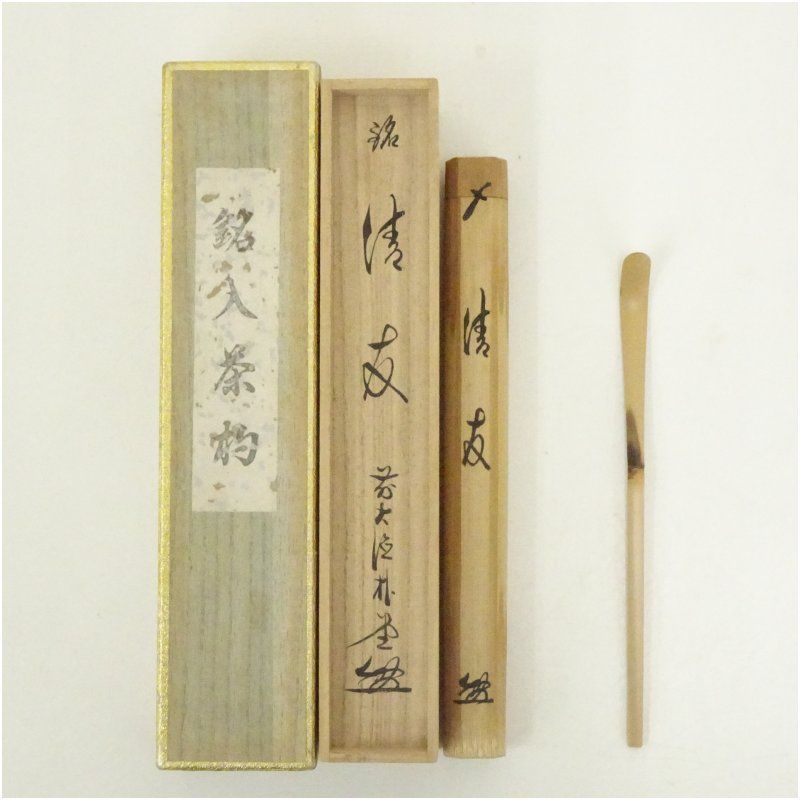 銘入茶杓
銘
清友
前大徳朴堂
〆
清友